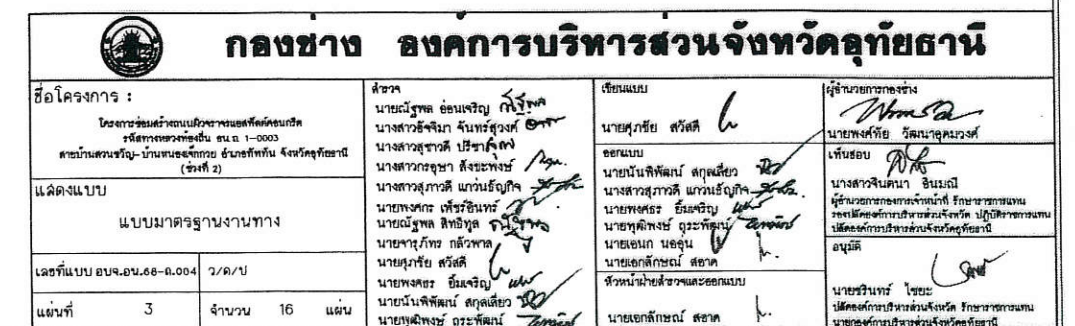 กองช่าง องค์การบริหารส่วนจังหวัดอุทัยธานี
ชื่อโครงการ :
โครงการซ่อมสร้างถนนผิวจราจรแอสฟัลต์คอนกรีต
รหัสทางหลวงท้องถิ่น อน.ถ 1-0003
สายบ้านสวนขวัญ-บ้านหนองเจ๊กกวย อำเภอทัพทัน จังหวัดอุทัยธานี
(ช่วงที่ 2)
แสดงแบบ
แบบมาตรฐานงานทาง
เลขที่แบบ อบจ.อน.68-ถ.004
ว/ด/ป
แผ่นที่ 3
จำนวน 16 แผ่น
สำรวจ
นายณัฐพล อ่อนเจริญ
นางสาวอัจจิมา จันทร์สุวงศ์
นางสาวสุชาวดี ปรีชา
นางสาวกรอุษา สังขะพงษ์
นางสาวสุภาวดี แกวนธัญกิจ
นายพงศกร เพ็ชร์อินทร์
นายณัฐพล สิทธิทูล
นายจารุภัทร กลัวพาล
นายศุภชัย สวัสดี
นายพงศธร ยิ้มเจริญ
นายนันพิพัฒน์ สกุลเลี่ยว
นายพุฒิพงษ์ ถุระพัฒน์
เขียนแบบ
นายศุภชัย สวัสดี
ออกแบบ
นายนันพิพัฒน์ สกุลเลี่ยว
นางสาวสุภาวดี แกวนธัญกิจ
นายพงศธร ยิ้มเจริญ
นายพุฒิพงษ์ ถุระพัฒน์
นายเอนก นออุ่น
นายเอกลักษณ์ สอาด
หัวหน้าฝ่ายสำรวจและออกแบบ
นายเอกลักษณ์ สอาด
ผู้อำนวยการกองช่าง
นายพงศ์ทัย วัฒนาอุดมวงศ์
เห็นชอบ
นางสาวจินตนา อินมณี
ผู้อำนวยการกองการเจ้าหน้าที่ รักษาราชการแทน
รองปลัดองค์การบริหารส่วนจังหวัด ปฏิบัติราชการแทน
ปลัดองค์การบริหารส่วนจังหวัดอุทัยธานี
อนุมัติ
นายชรินทร์ ไชยะ
ปลัดองค์การบริหารส่วนจังหวัด รักษาราชการแทน
นายกองค์การบริหารส่วนจังหวัดอุทัยธานี